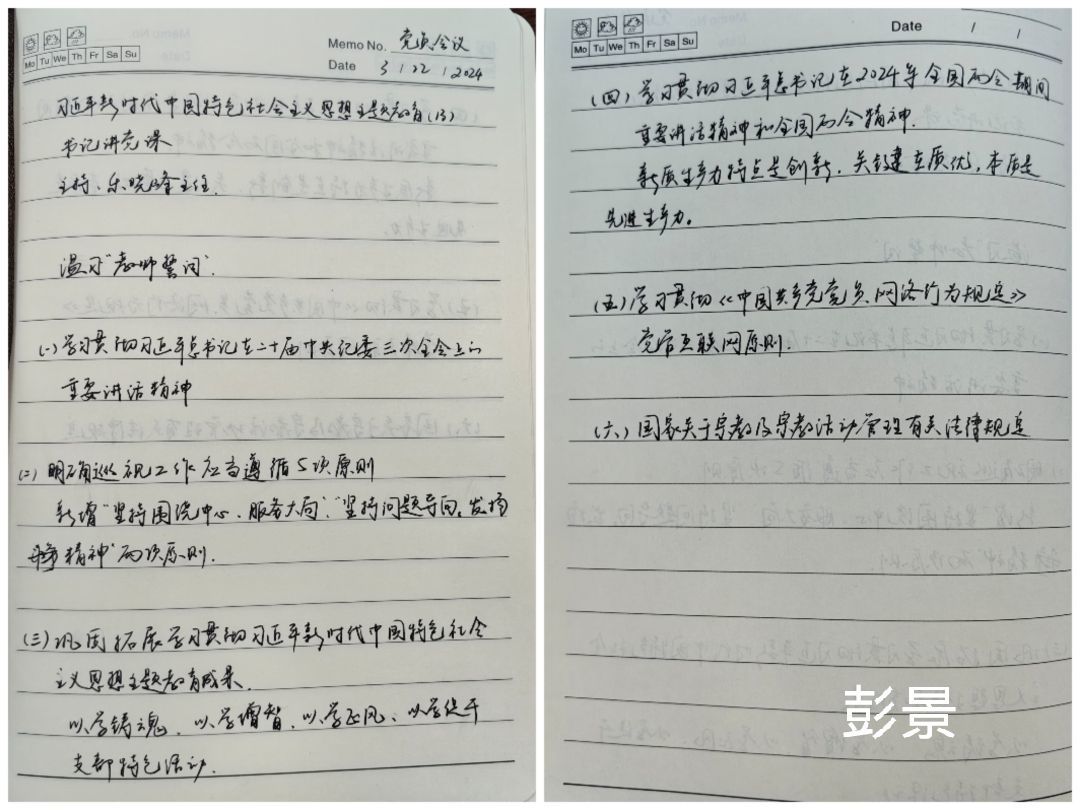 Memo No. 党员会议
Mo Tu We Th Fr Sa Su
Date 3 / 22 / 2024
习近平新时代中国特色社会主义思想主题教育(13)
书记讲党课
主持：乐晓峰主任.
温习“教师誓词”.
(一)学习贯彻习近平总书记在二十届中央纪委三次全会上的
重要讲话精神
(二)明确巡视工作应当遵循5项原则
新增“坚持围绕中心、服务大局”、“坚持问题导向，发扬
斗争精神”两项原则.
(三)巩固拓展学习贯彻习近平新时代中国特色社会
主义思想主题教育成果.
以学铸魂、以学增智、以学正风、以学促干
支部特色活动.
Mo Tu We Th Fr Sa Su
Date / /
(四)学习贯彻习近平总书记在2024年全国两会期间
重要讲话精神和全国两会精神.
新质生产力特点是创新，关键在质优，本质是
先进生产力。
(五)学习贯彻《中国共产党党员网络行为规定》
党管互联网原则.
(六)国家关于宗教及宗教活动管理有关法律规定
彭景